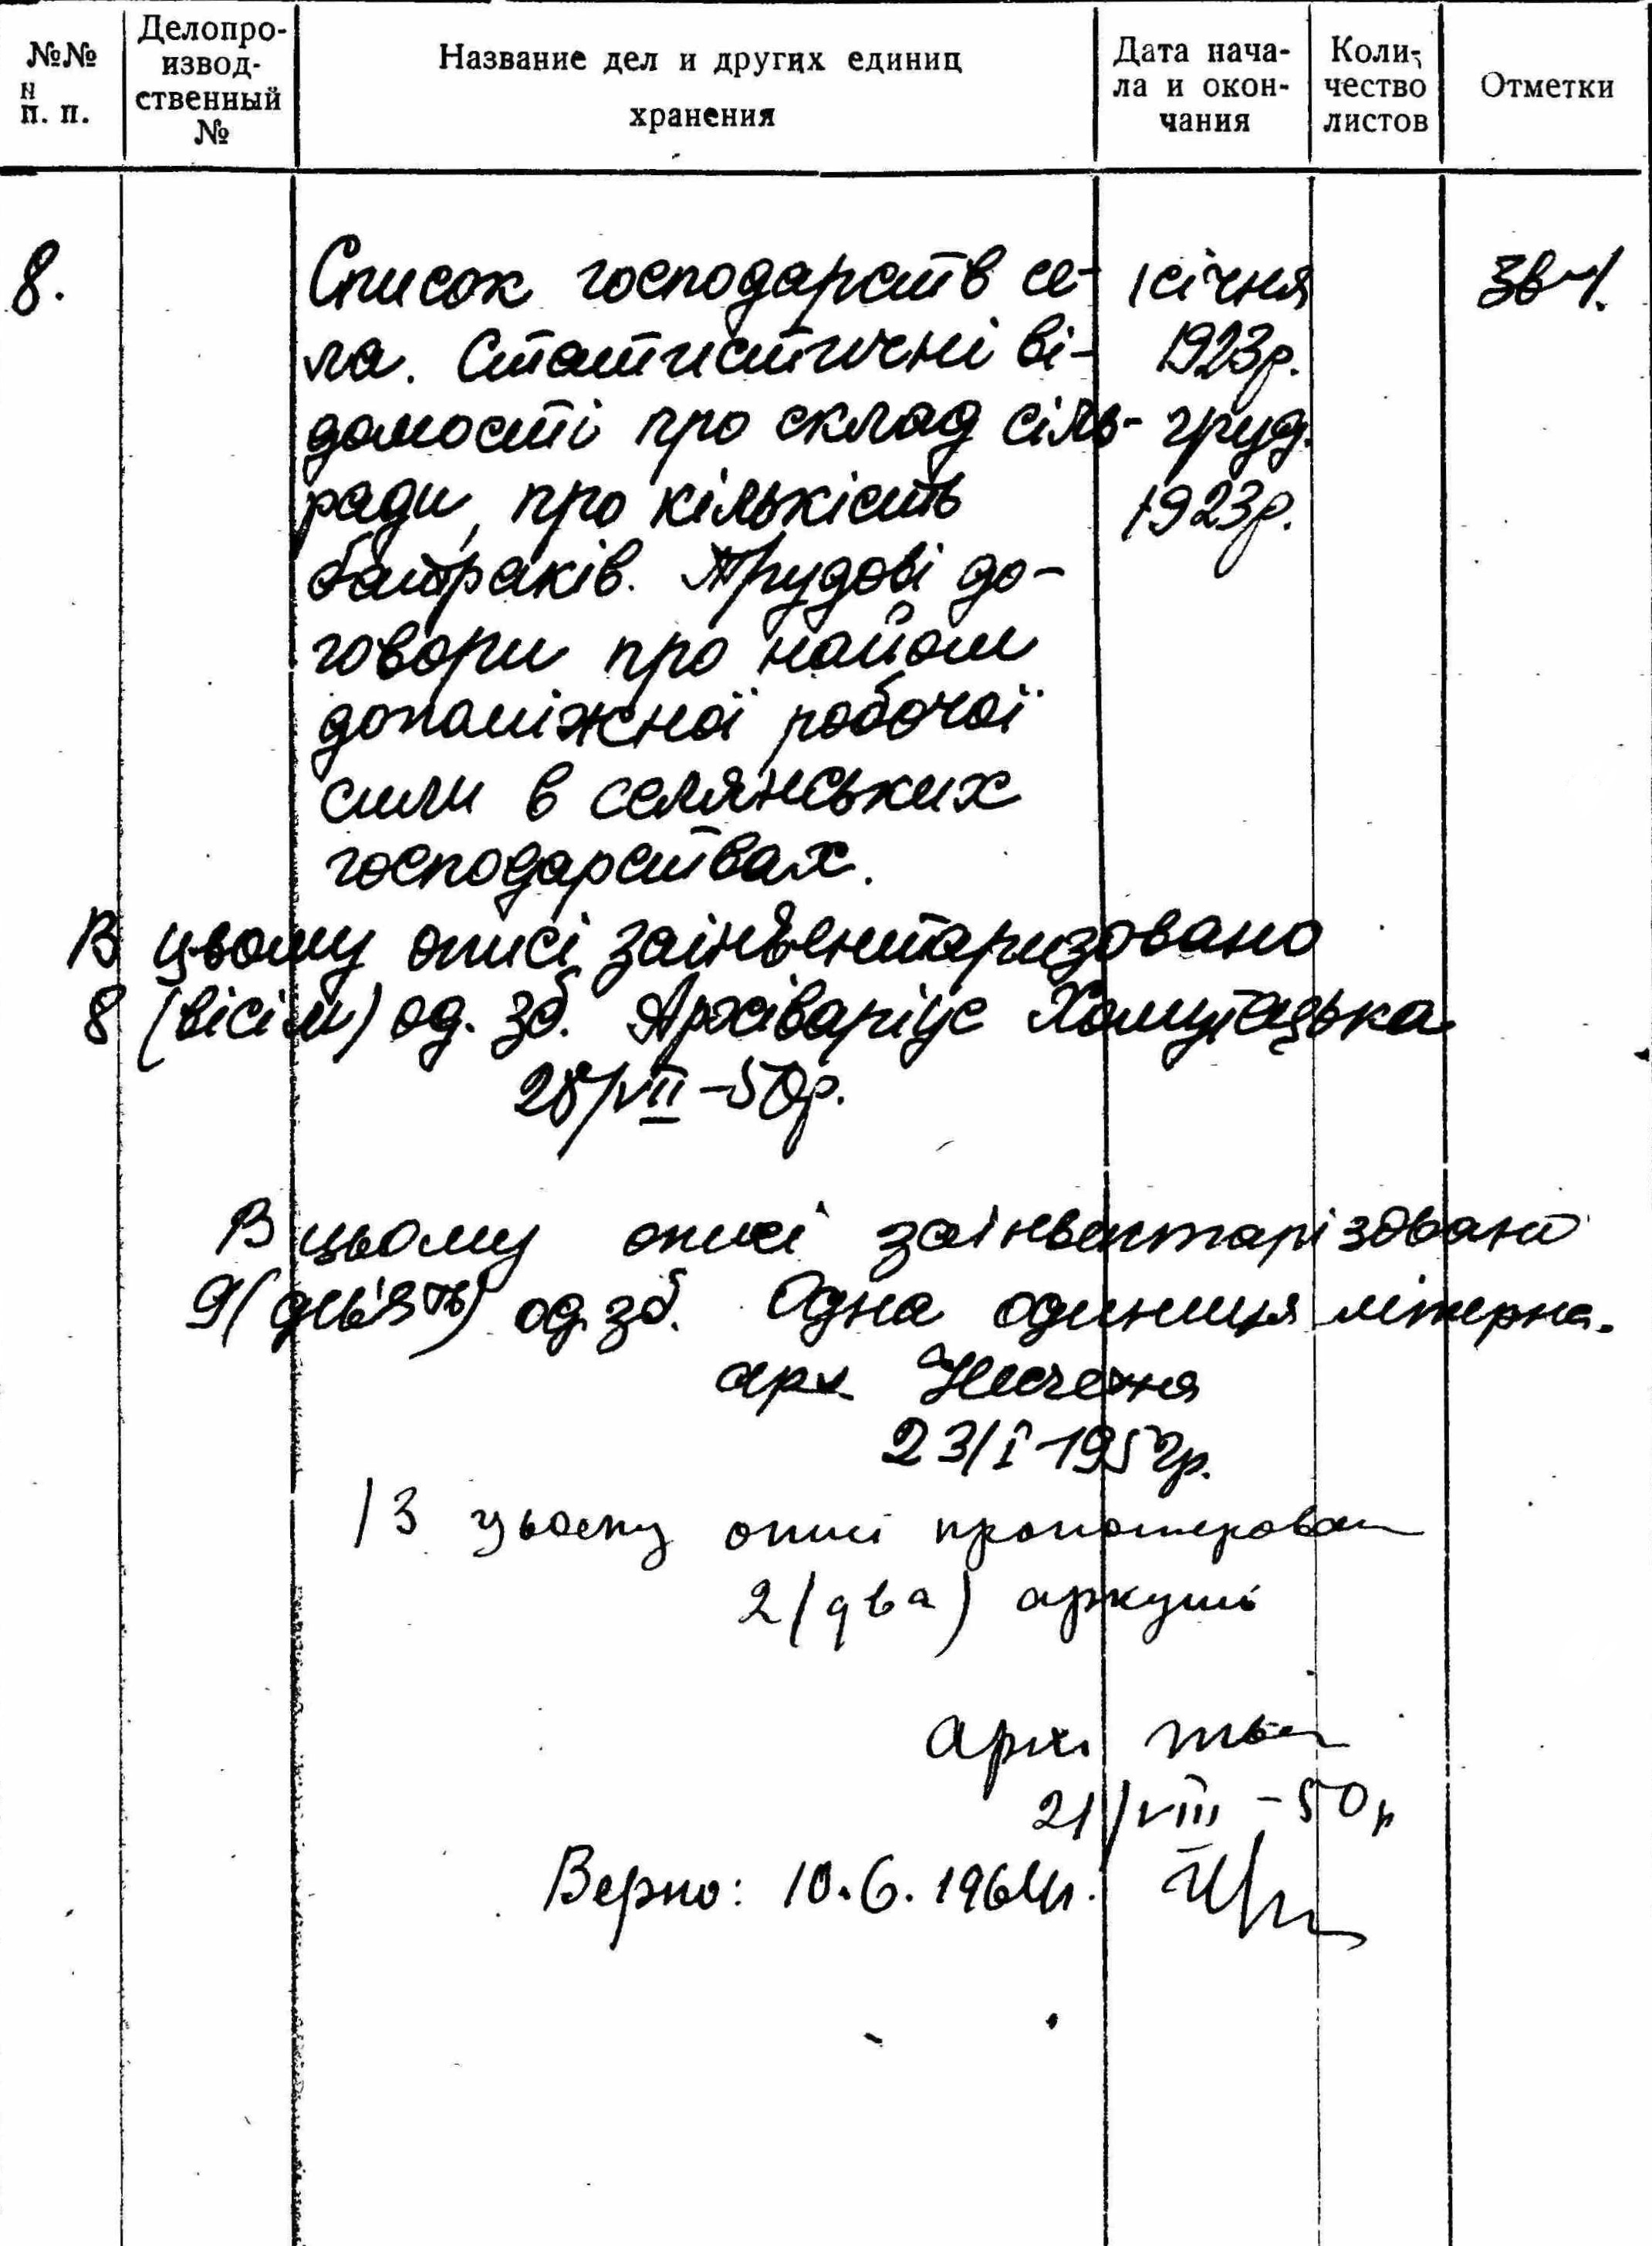 №№ п. п.
Делопро-
извод-
ственный
№
Название дел и других единиц
хранения
Дата нача-
ла и окон-
чания
Коли-
чество
листов
Отметки
8.
Список господарств се-
ла. Статистичні ві-
домості про склад сіль-
ради, про кількість
батраків. Трудові до-
говори про найом
допоміжної робочої
сили в селянських
господарствах.
1 січня
1923р.
груд.
1923р.
В цьому описі заінвентаризовано
8 (вісім) од. зб. Архіваріус
28/VII-50р.
В цьому описі заінвентарізовано
9 (дев'ять) од. зб. Одна одиниця літерна.
арх
23/I-1952р.
В цьому описі пронумерован
2 (два) аркуші
Арх.
21/VIII-50р
Верно: 10.6.1964г.